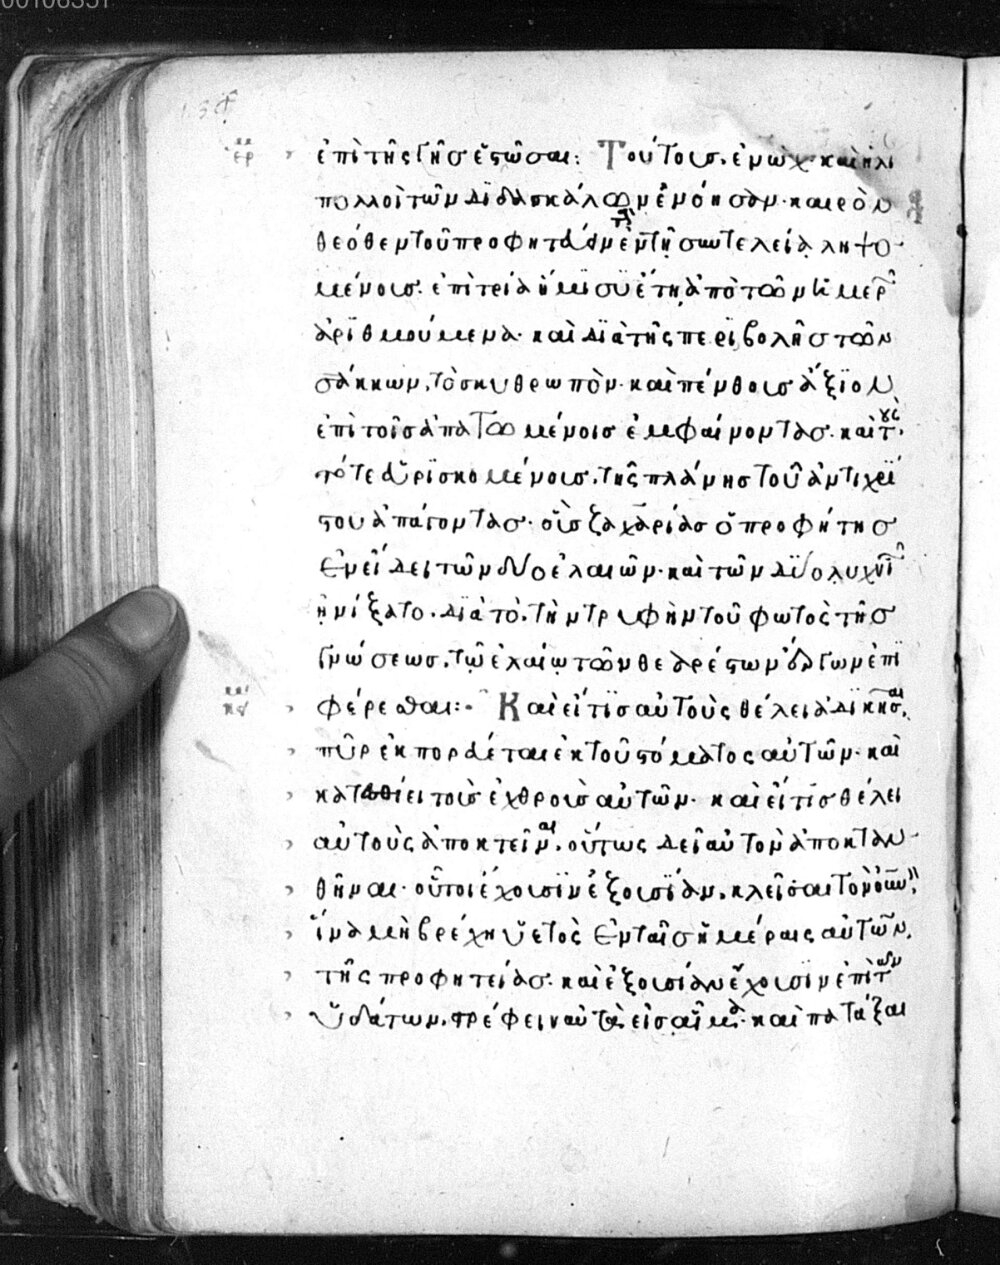 ἐπὶ τῆς γῆς ἑστῶσαι: Τούτους, ἐνὼχ καὶ ἠλι
πολλοὶ τῶν διδασκάλων ἐνόησαν· καιρὸν
θεόθεν τοῦ προφητεύειν ἐν τῆ συντελεία ληψο
μένους· ἐπὶ τρία ἥμισυ ἔτη ἀπὸ τῶν
ἀριθμούμενα· καὶ διὰ τῆς περιβολῆς τῶν
σάκκων, τὸ σκυθρωπὸν· καὶ πένθους ἄξιον
ἐπὶ τοῖς ἀπατωμένοις ἐμφαίνοντας· καὶ τους
τότε εὑρισκομένους, τῆς πλάνης τοῦ ἀντιχρί
στου ἀπάγοντας· οὓς ζαχαρίας ὁ προφήτης
ἐν εἴδει τῶν δύο ἐλαιῶν· καὶ τῶν δύο λυχνι
ἠνίξατο· διὰ τὸ, τὴν τρυφὴν τοῦ φωτὸς τῆς
γνώσεως, τῶ ἐλαίω τῶν θεαρέστων ἔργων ἐπι
φέρεσθαι:· Καὶ εἴ τις αὐτοὺς θέλει ἀδικῆσαι,
πῦρ ἐκπορεύεται ἐκ τοῦ στόματος αὐτῶν· καὶ
κατεσθίει τοὺς ἐχθροὺς αὐτῶν· καὶ εἴ τις θέλει
αὐτοὺς ἀποκτεῖναι, οὕτως δεῖ αὐτὸν ἀποκταν
θῆναι· οὗτοι ἔχουσιν ἐξουσίαν, κλεῖσαι τὸν οὐνον,
ἵνα μὴ βρέχη ὑετὸς ἐν ταῖς ἡμέραις αὐτῶν,
τῆς προφητείας· καὶ ἐξουσίαν ἔχουσιν ἐπὶ των
ὑδάτων, στρέφειν αὐτὰ εἰς αἷμα· καὶ πατάξαι